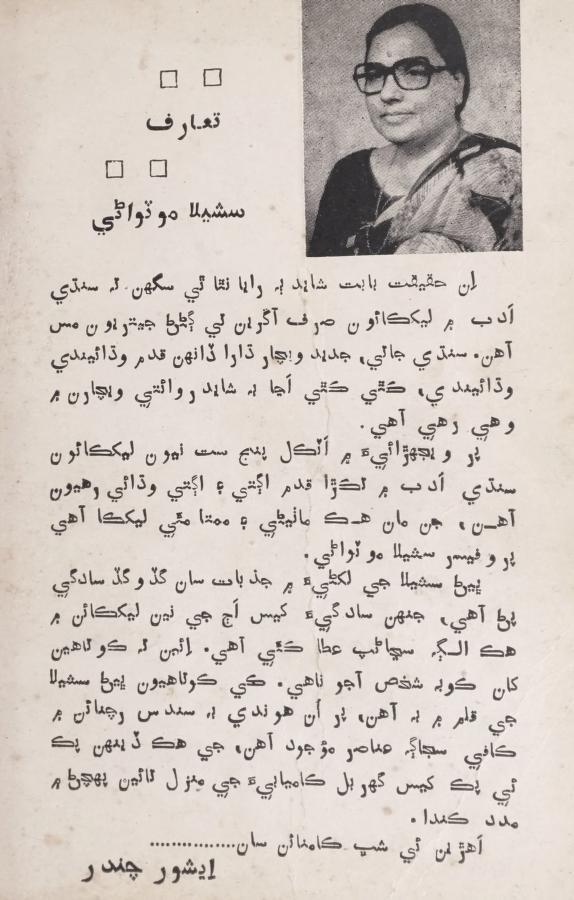 تعارف
سشيلا موٽواڻي
اِن حقيقت بابت شايد ٻہ رايا نٿا ٿي سگهن تہ سنڌي
اَدب ۾ ليککائون صرف آڱرين تي ڳڻڻ جيتريون مس
آهن. سنڌي جاتي، جديد ويچار ڌارا ڏانهن قدم وڌائيندي
وڌائيندي، ڪٿي ڪٿي اَڃا بہ شايد روائتي ويچارن ۾
وهي رهي آهي.
پر ويجهڙائيءَ ۾ اَٽڪل پنج ست نيون ليککائون
سنڌي اَدب ۾ تکڙا قدم اڳتي ۽ اڳتي وڌائي رهيون
آهن، جن مان هڪ مانيڻي ۽ ممتا مئي ليککا آهي
پروفيسر سشيلا موٽواڻي.
ڀيڻ سشيلا جي لکڻيءَ ۾ جذبات سان گڏوگڏ سادگي
پڻ آهي، جنهن سادگيءَ کيس اَڄ جي نين ليککائن ۾
هڪ الڳ سڃاڻپ عطا ڪئي آهي. اِئين تہ ڪوتاهين
کان ڪوبہ شخص آجو ناهي. ڪي ڪوتاهيون ڀيڻ سشيلا
جي قلم ۾ بہ آهن، پر اُن هوندي بہ سندس رچنائن ۾
ڪافي سڃاڳ عناصر موجود آهن، جي هڪ ڏينهن پڪ
ئي پڪ کيس گهربل ڪاميابيءَ جي منزل تائين پهچڻ ۾
مدد ڪندا.
اَهڙين ئي شڀ ڪامنائن سان...............
ايشور چندر